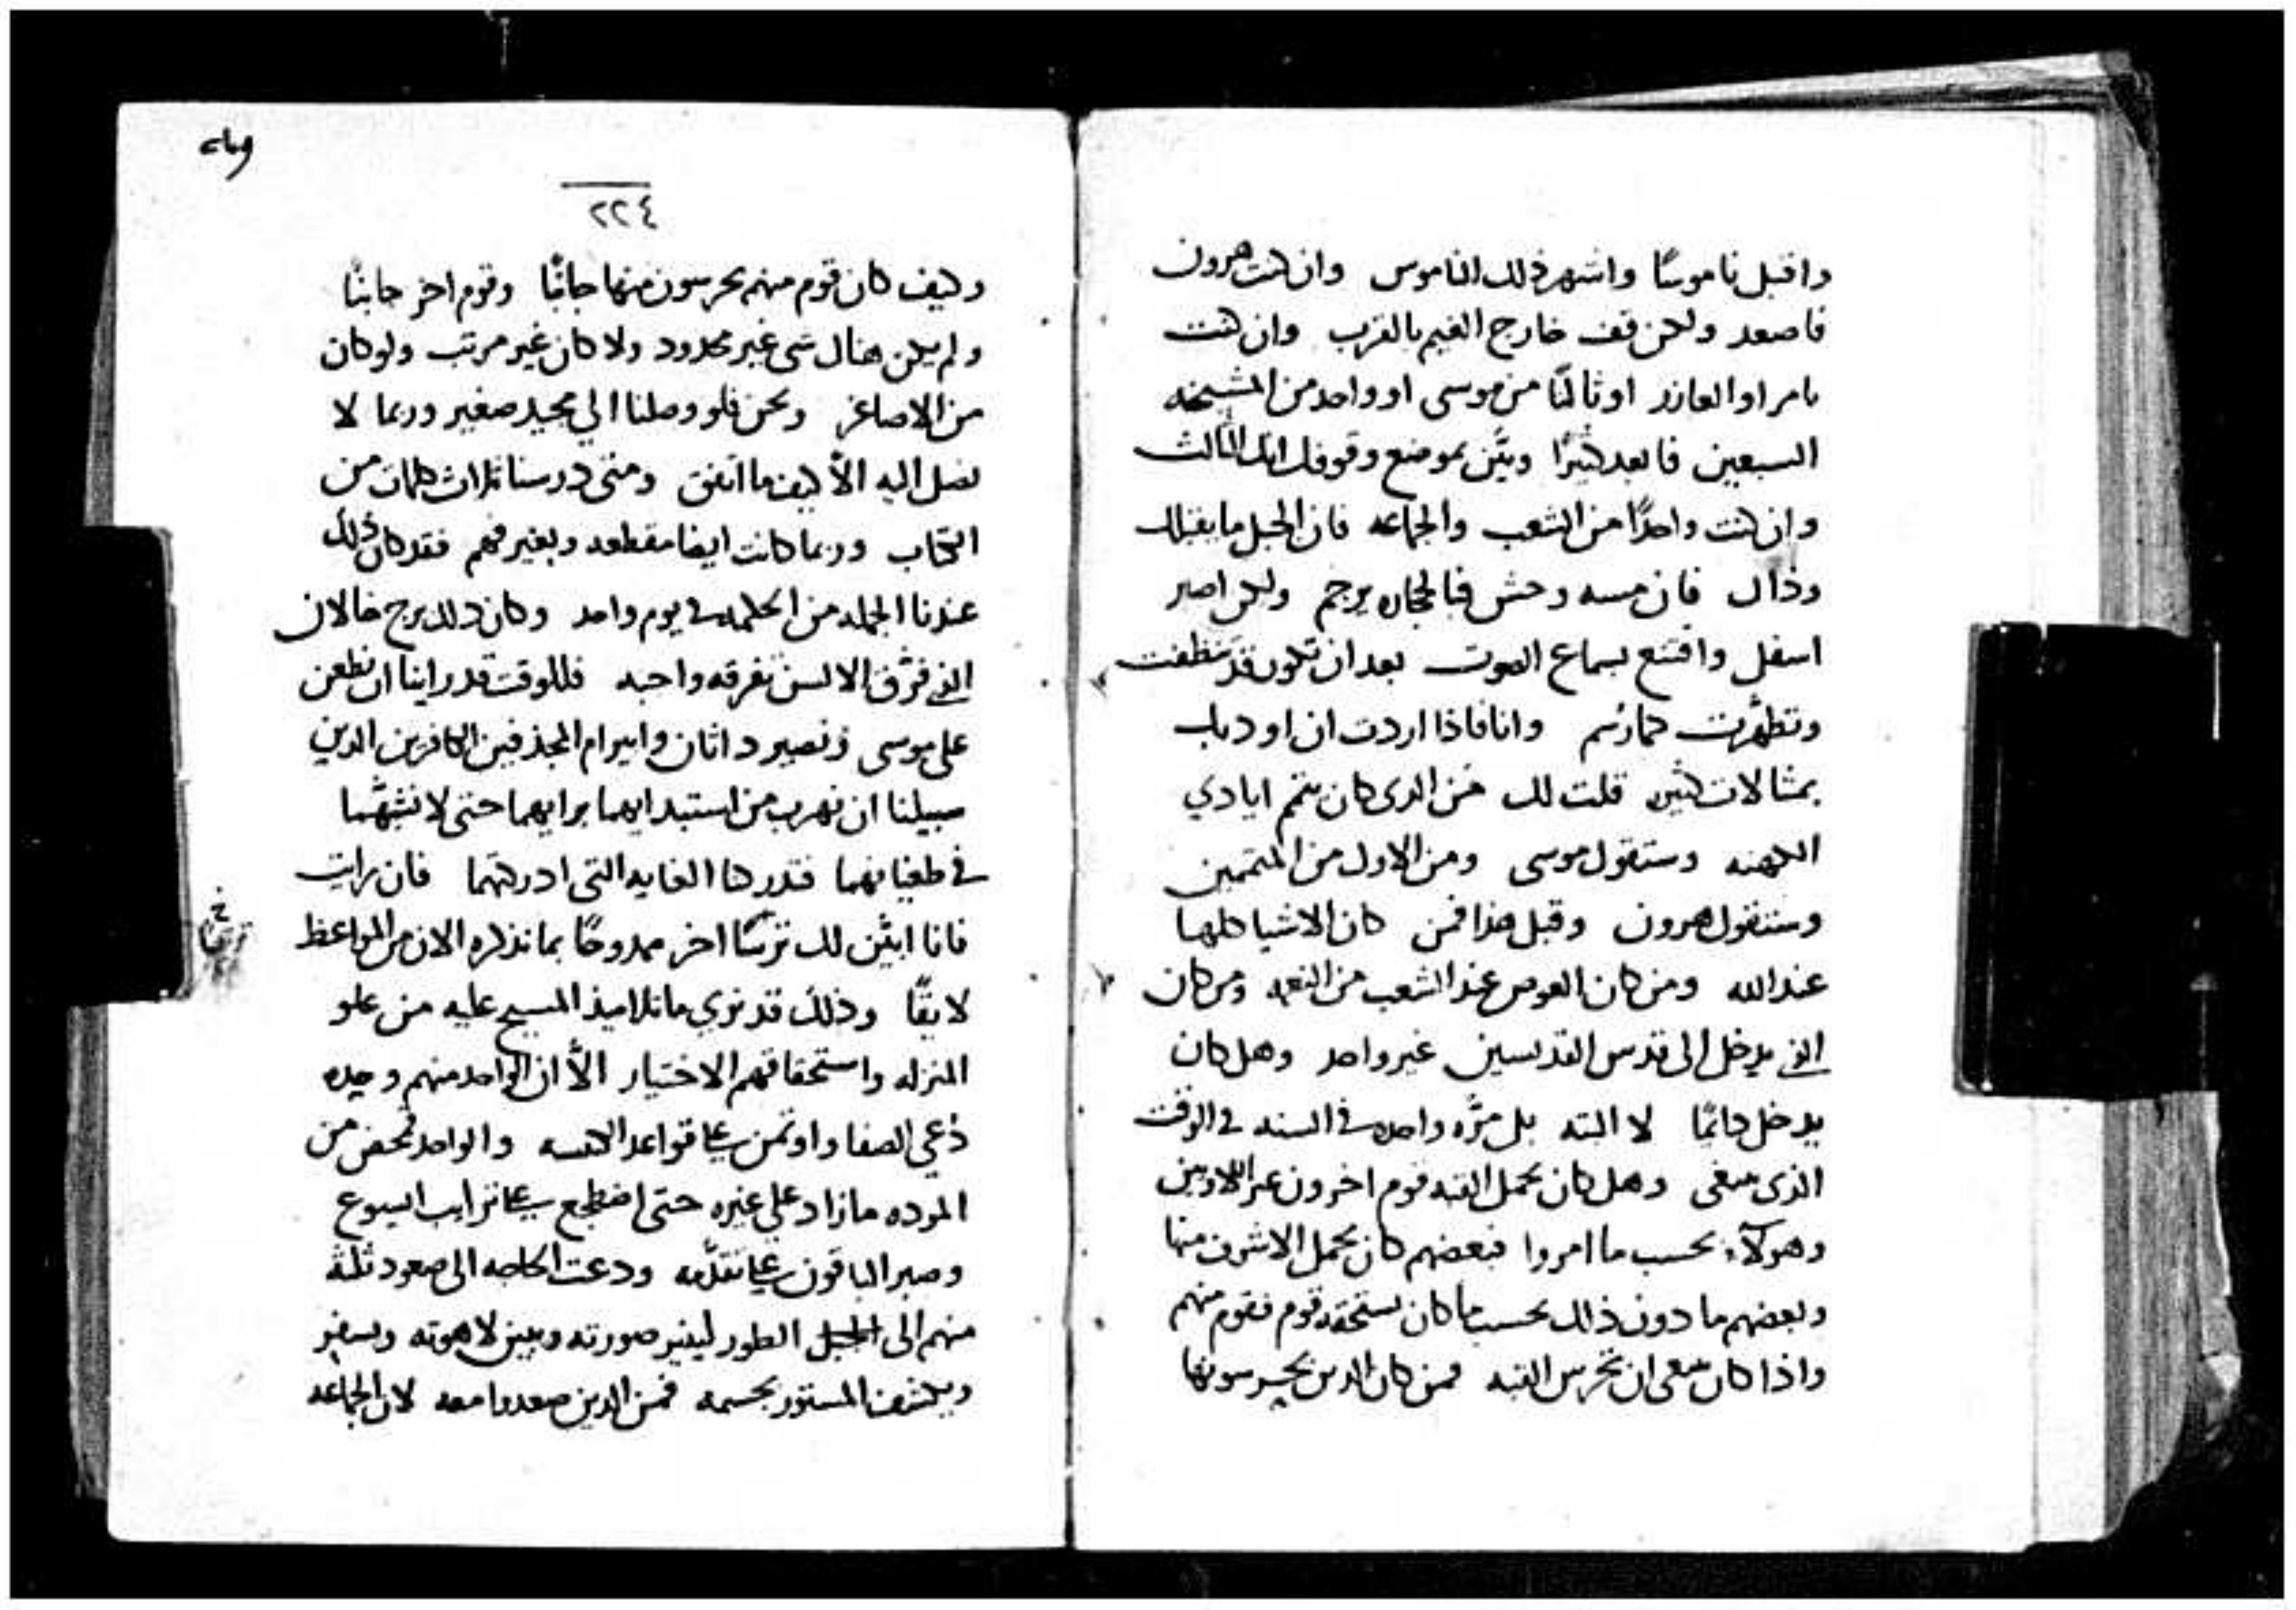 واقبل ناموسًا واشهر ذلك الناموس وان كنت هرون
فاصعد ولكن قف خارج الغيم بالقرب وان كنت
نامر او العازر او ثالثًا من موسى او واحد من المشيخه
السبعين فابعد كثيرًا وبيّن بموضع وقوفك انك الثالث
وان كنت واحدًا من الشعب والجماعه فان الجبل ما يقبلك
وذاك فان مسه وحش فبالحجاره يرجم ولكن اصبر
اسفل واقتنع بسماع الصوت بعد ان تكون قد تنظفت
وتطهّرت كما رُسم وانا فاذا اردت ان اودبك
بمثالات كثيره قلت لك من الذى كان يتمم ايادي
الكهنه وستقول موسى ومن الاول من المتممين
وستقول هرون وقبل هذا فمن كان الاشيا كلها
عند الله ومن كان العوض عند الشعب من النغمه ومن كان
الذى يدخل الى قدس القديسين غير واحد وهل كان
يدخل دائمًا لا البته بل مرّه واحده فى السنه فى الوقت
الذى ينبغى وهل كان يحمل القبه قوم اخرون غير اللاويين
وهولآء بحسب ما امروا فبعضهم كان يحمل الاشرف منها
وبعضهم ما دون ذلك بحسب ما كان يستحقه قوم فقوم منهم
واذا كان ينبغى ان تحرس القبه فمن كان الذين يحرسونها
٢٢٤
وكيف كان قوم منهم يحرسون منها جانبًا وقوم اخر جانبًا
ولم يكن هناك شى غير محدود ولا كان غير مرتب ولو كان
من الاصاغر ونحن فلو وصلنا الي مجيد صغير وربما لا
نصل اليه الاّ كيف ما اتفق ومتى درسنا ثلاث كلمات من
الكتاب وربما كانت ايضا مقطعه وبغير فهم فقد كان ذلك
عندنا الجمله من الحكمه فى يوم واحد وكان ذلك برج خالان
الذى فرّق الالسن تفرقه واجبه فللوقت قد راينا ان نطعن
على موسى ونصير داثان وابيرام المجدفين الكافرين الذين
سبيلنا ان نهرب من استبدادهما برايهما حتى لا نتشبّه بهما
فى طغيانهما فتدركنا الغايه التى ادركتهما فان رايت
فانا ابيّن لك ترتيبًا اخر ممدوحًا بما نذكره الان من المواعظ
لايقًا وذلك قد نرى ما تلاميذ المسيح عليه من علو
المنزله واستحقاقهم الاختيار الاّ ان الواحد منهم وحده
دُعي الصفا واوتمن على قواعد الكنيسه والواحد محض من
الموده ما زاد على غيره حتى اضطجع على ترايب ايسوع
وصبر الباقون على تقدّمه ودعت الحاجه الى صعود ثلثة
منهم الى الجبل الطور لينير صورته ويبين لاهوته ويسفر
ويكشف المستور بجسمه فمن الذين صعدوا معه لان الجماعه